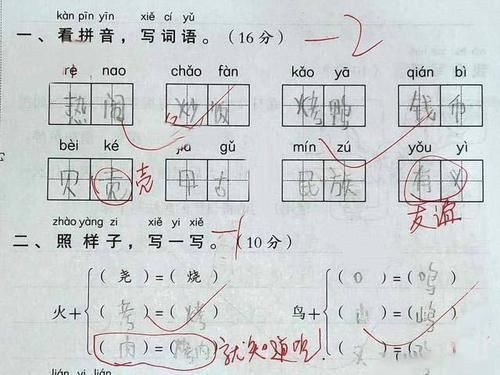 kàn pīn yīn xiě cí yǔ
一、看拼音，写词语。（16分） -2
rè nao chǎo fàn kǎo yā qián bì
热 闹 炒 饭 烤 鸭 钱 币
bèi ké jiǎ gǔ mín zú yǒu yì
贝 壳 甲 古 民 族 有 义
友谊
zhào yàng zi xiě yi xiě
二、照样子，写一写。 -1 （10分）
火+ （尧）=（烧） 鸟+ （口）=（鸣）
（考）=（烤） （山）=（
（肉）=（ 就知道吃！
lián yi lián